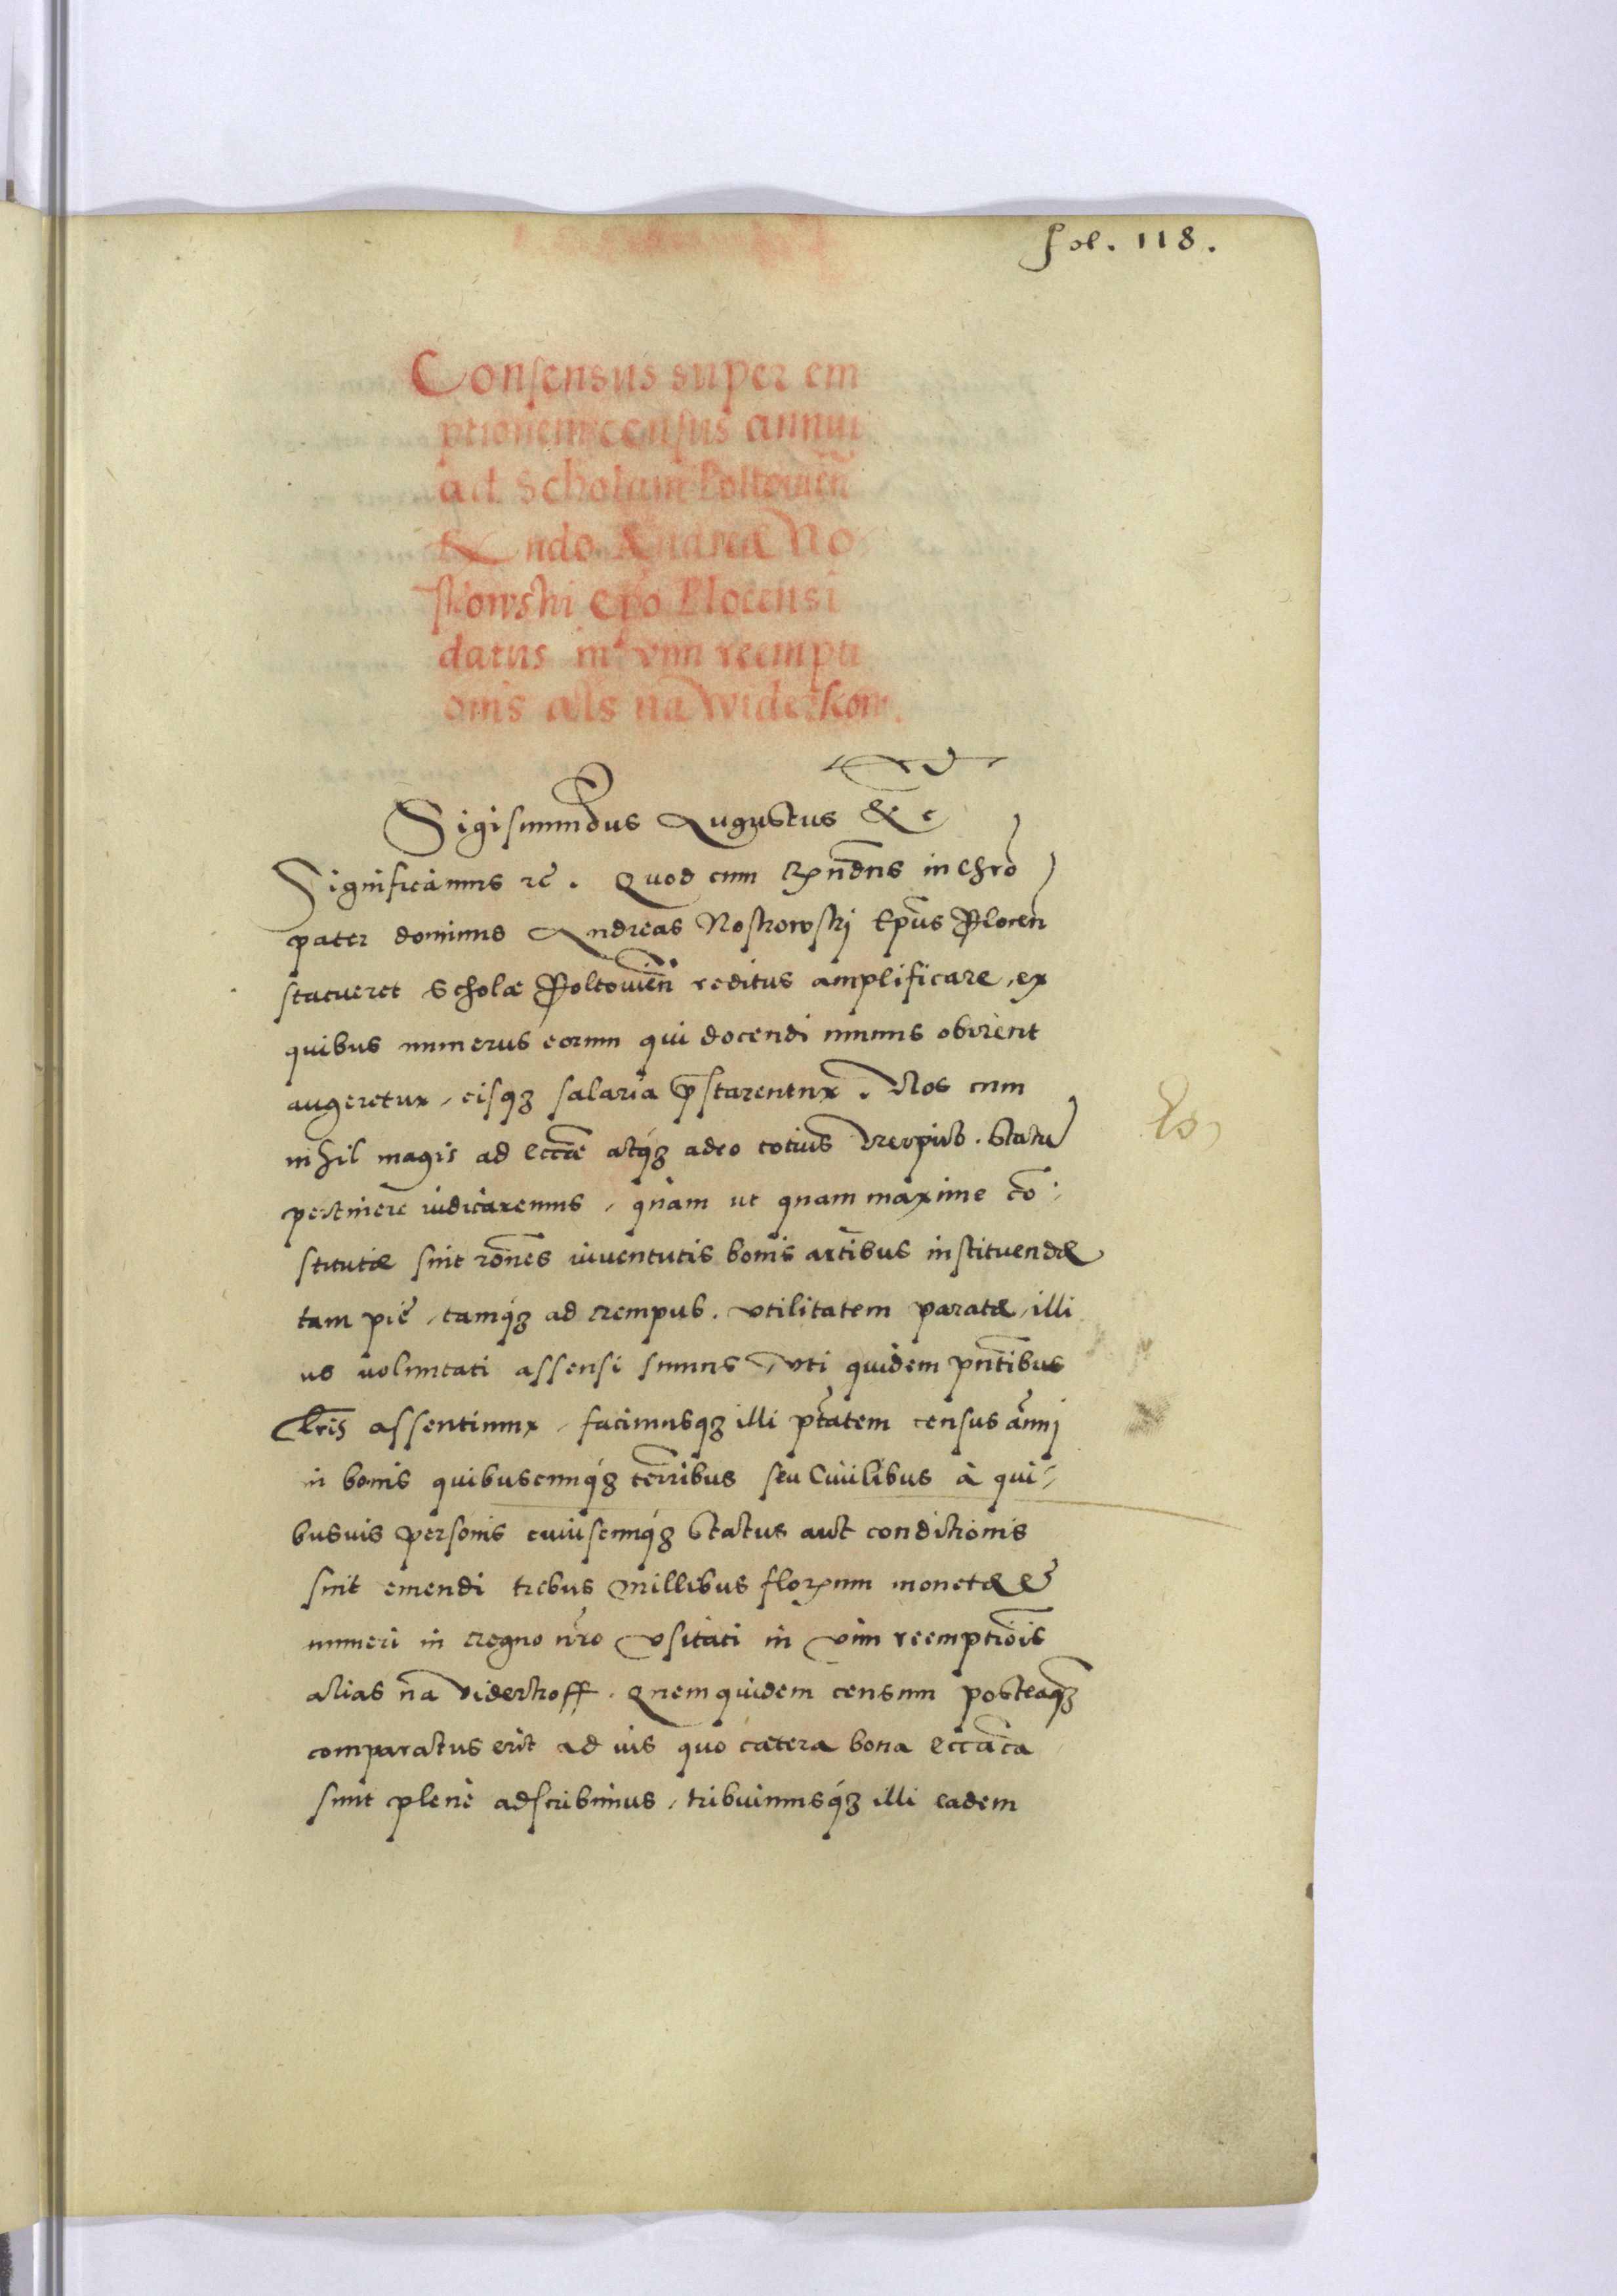 fol. 118.
Consensus super em
ptionem census annui
ad Scholam Poltouien̄
R̃ndo Andreæ No
skowski ep̄o Plocensi
datus in vim reempti
onis al̄s na widerkow.
Sigismundus Augustus &c
Significamus &c. Quod cum R̃ndus in chr̄o
pater dominus Andreas Noskowskj Ep̄us Plocen̄
statueret Scholæ Poltouien̄ reditus amplificare, ex
quibus numerus eorum qui docendi munus obirent
augeretur, eisq3 salaria p̄starentur. Nos cum
nihil magis ad eccl̄iæ atq3 adeo totius reipub. statū
pertinere iudicaremus, quàm ut quam maxime cō
stitutæ sint rōnes iuventutis bonis artibus instituendæ
tam piè, tamq3 ad rempub. utilitatem paratæ, illi
us voluntati assensi sumus, uti quidem pn̄tibus
lr̄is assentimur, facimusq3 illi pt̄atem census annuj
in bonis quibuscunq3 terr̄ibus seu Ciuilibus à qui-
busuis personis cuiuscunq3 status aut conditionis
sint emendi tribus millibus florenum monetæ et
numeri in regno nr̄o usitati in vim reemptionis
alias na viderkoff. Quem quidem censum posteaq3
comparatus erit ad ius quo cætera bona eccl̄iastica
sunt plenè adscribimus, tribuimusq3 illi eadem